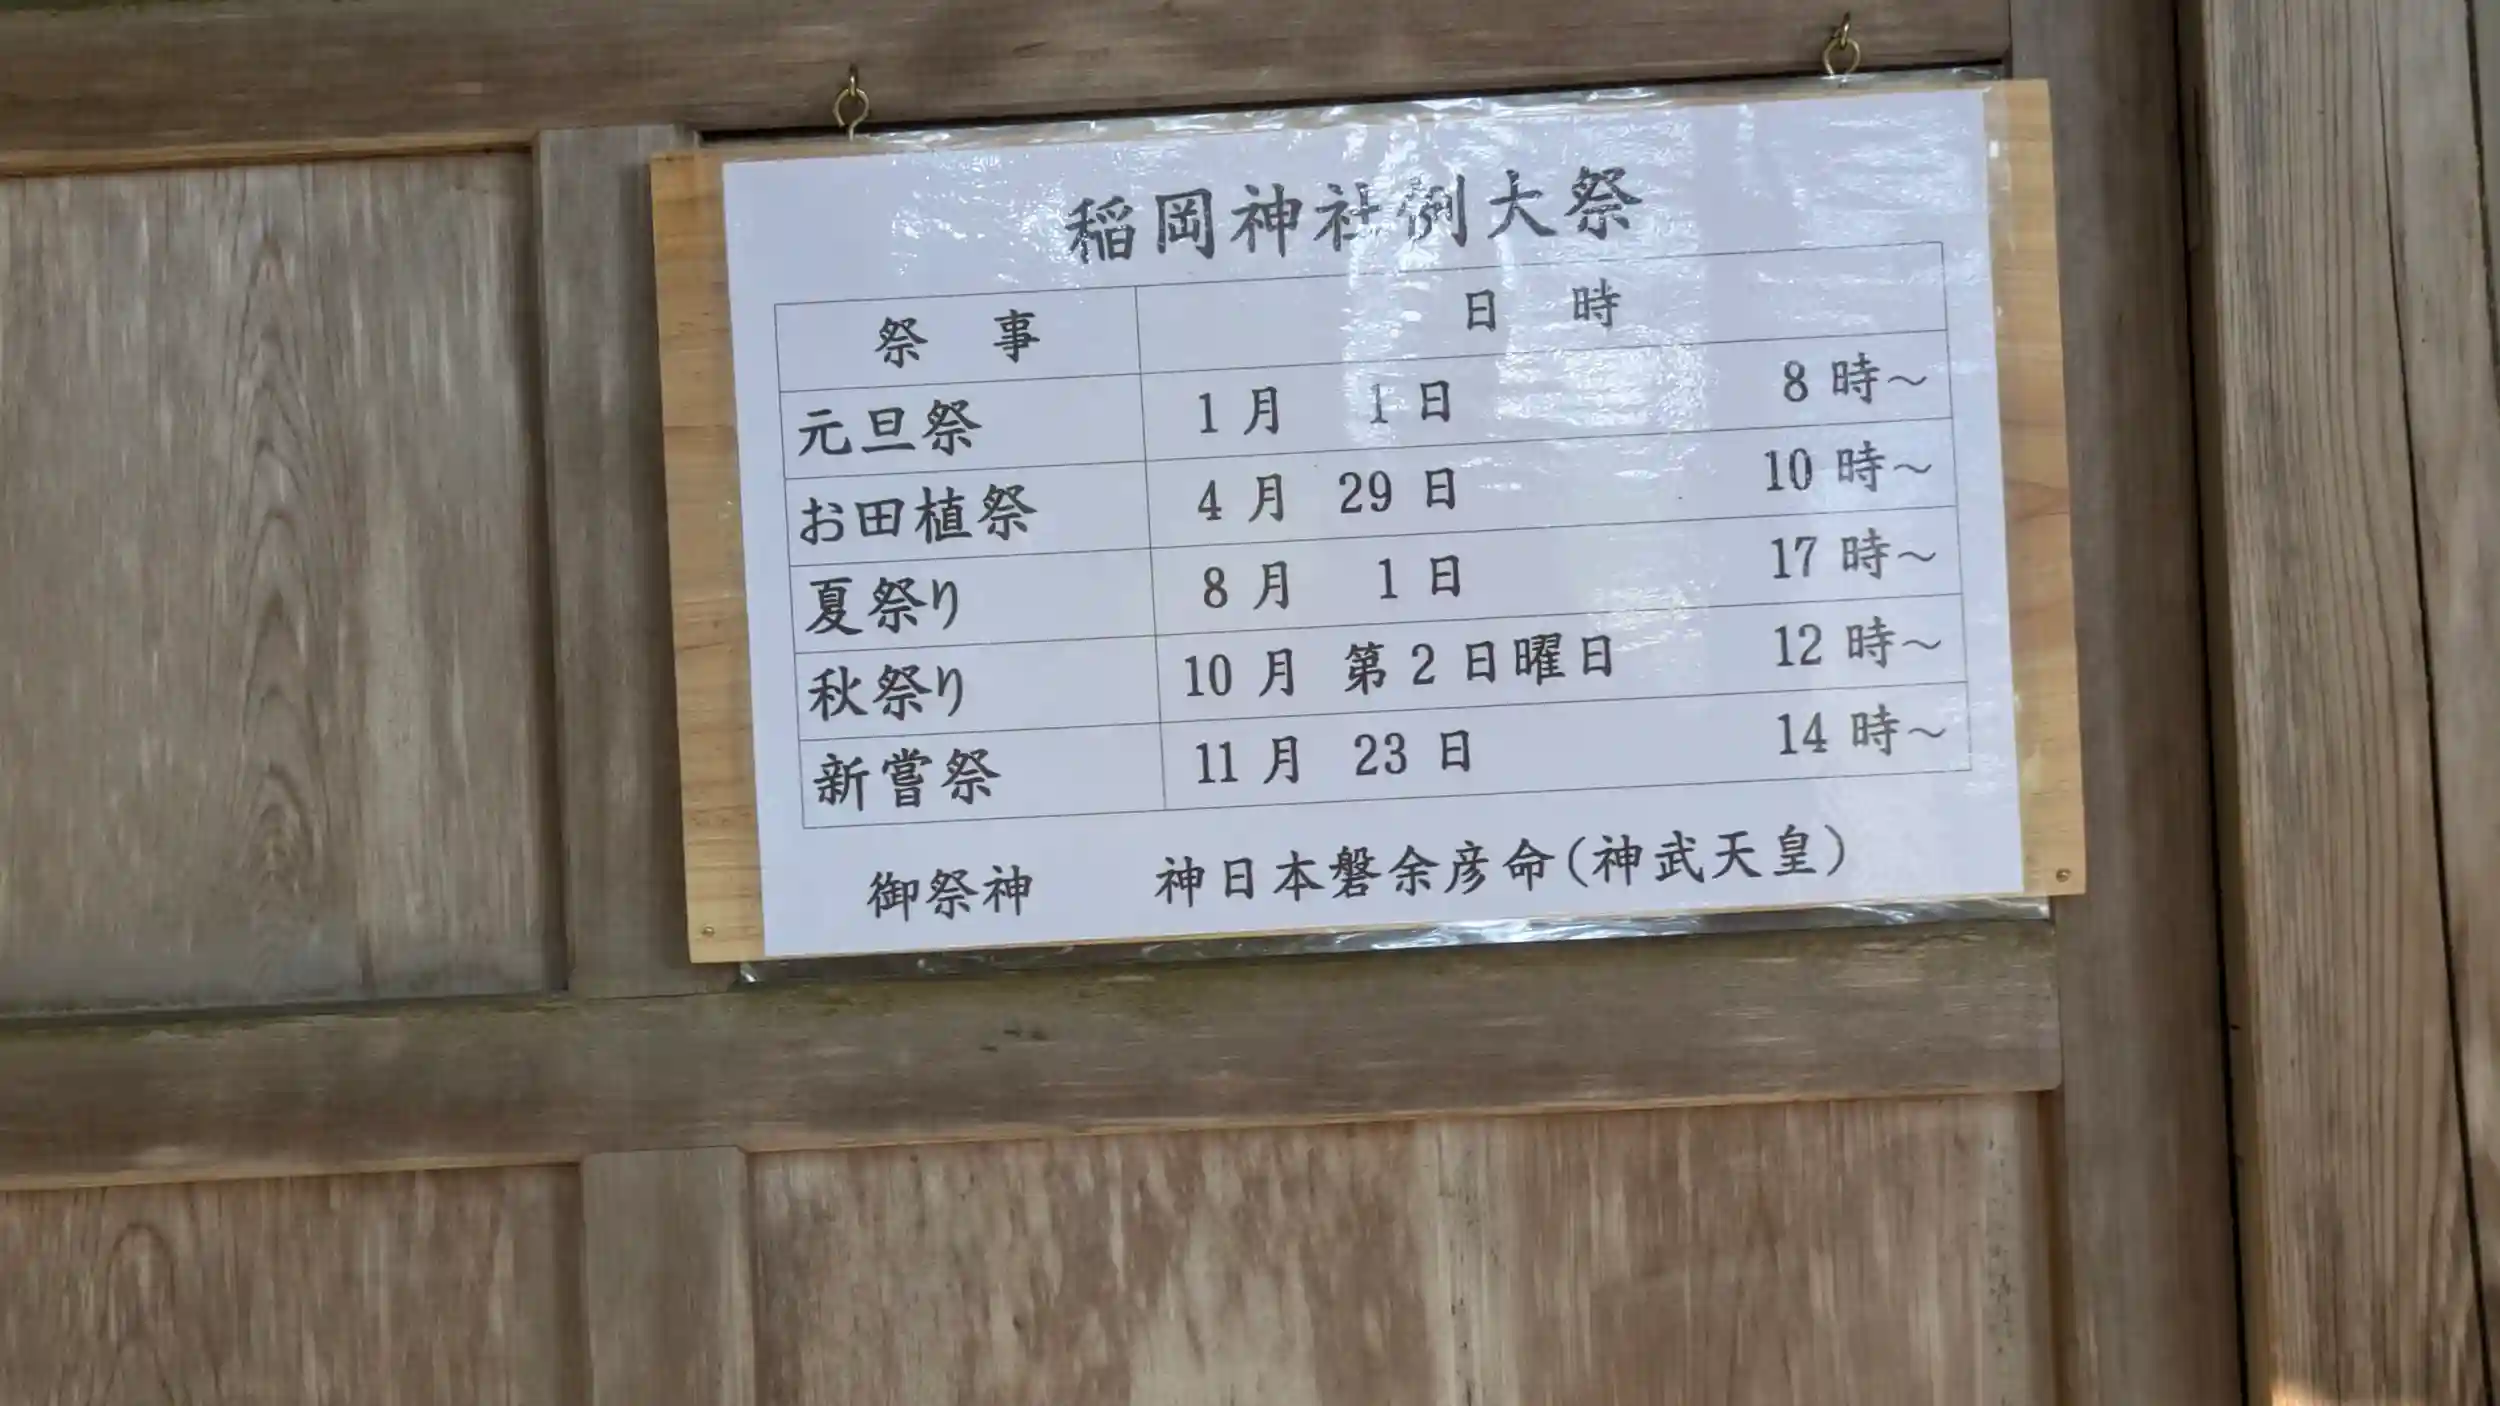 稲岡神社例大祭
祭 事 日 時
元旦祭 1月 1日 8時～
お田植祭 4月 29日 10時～
夏祭り 8月 1日 17時～
秋祭り 10月 第2日曜日 12時～
新嘗祭 11月 23日 14時～
御祭神 神日本磐余彦命(神武天皇)